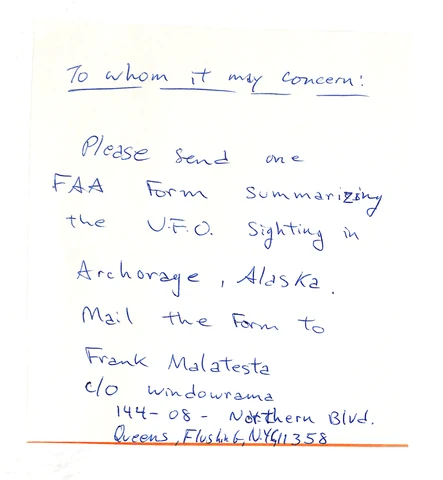 To whom it may concern:
Please send one
FAA Form summarizing
the U.F.O. Sighting in
Archorage, Alaska.
Mail the Form to
Frank Malatesta
c/o windowrama
144-08- Northern Blvd.
Queens, Flushing, N.Y. 11358